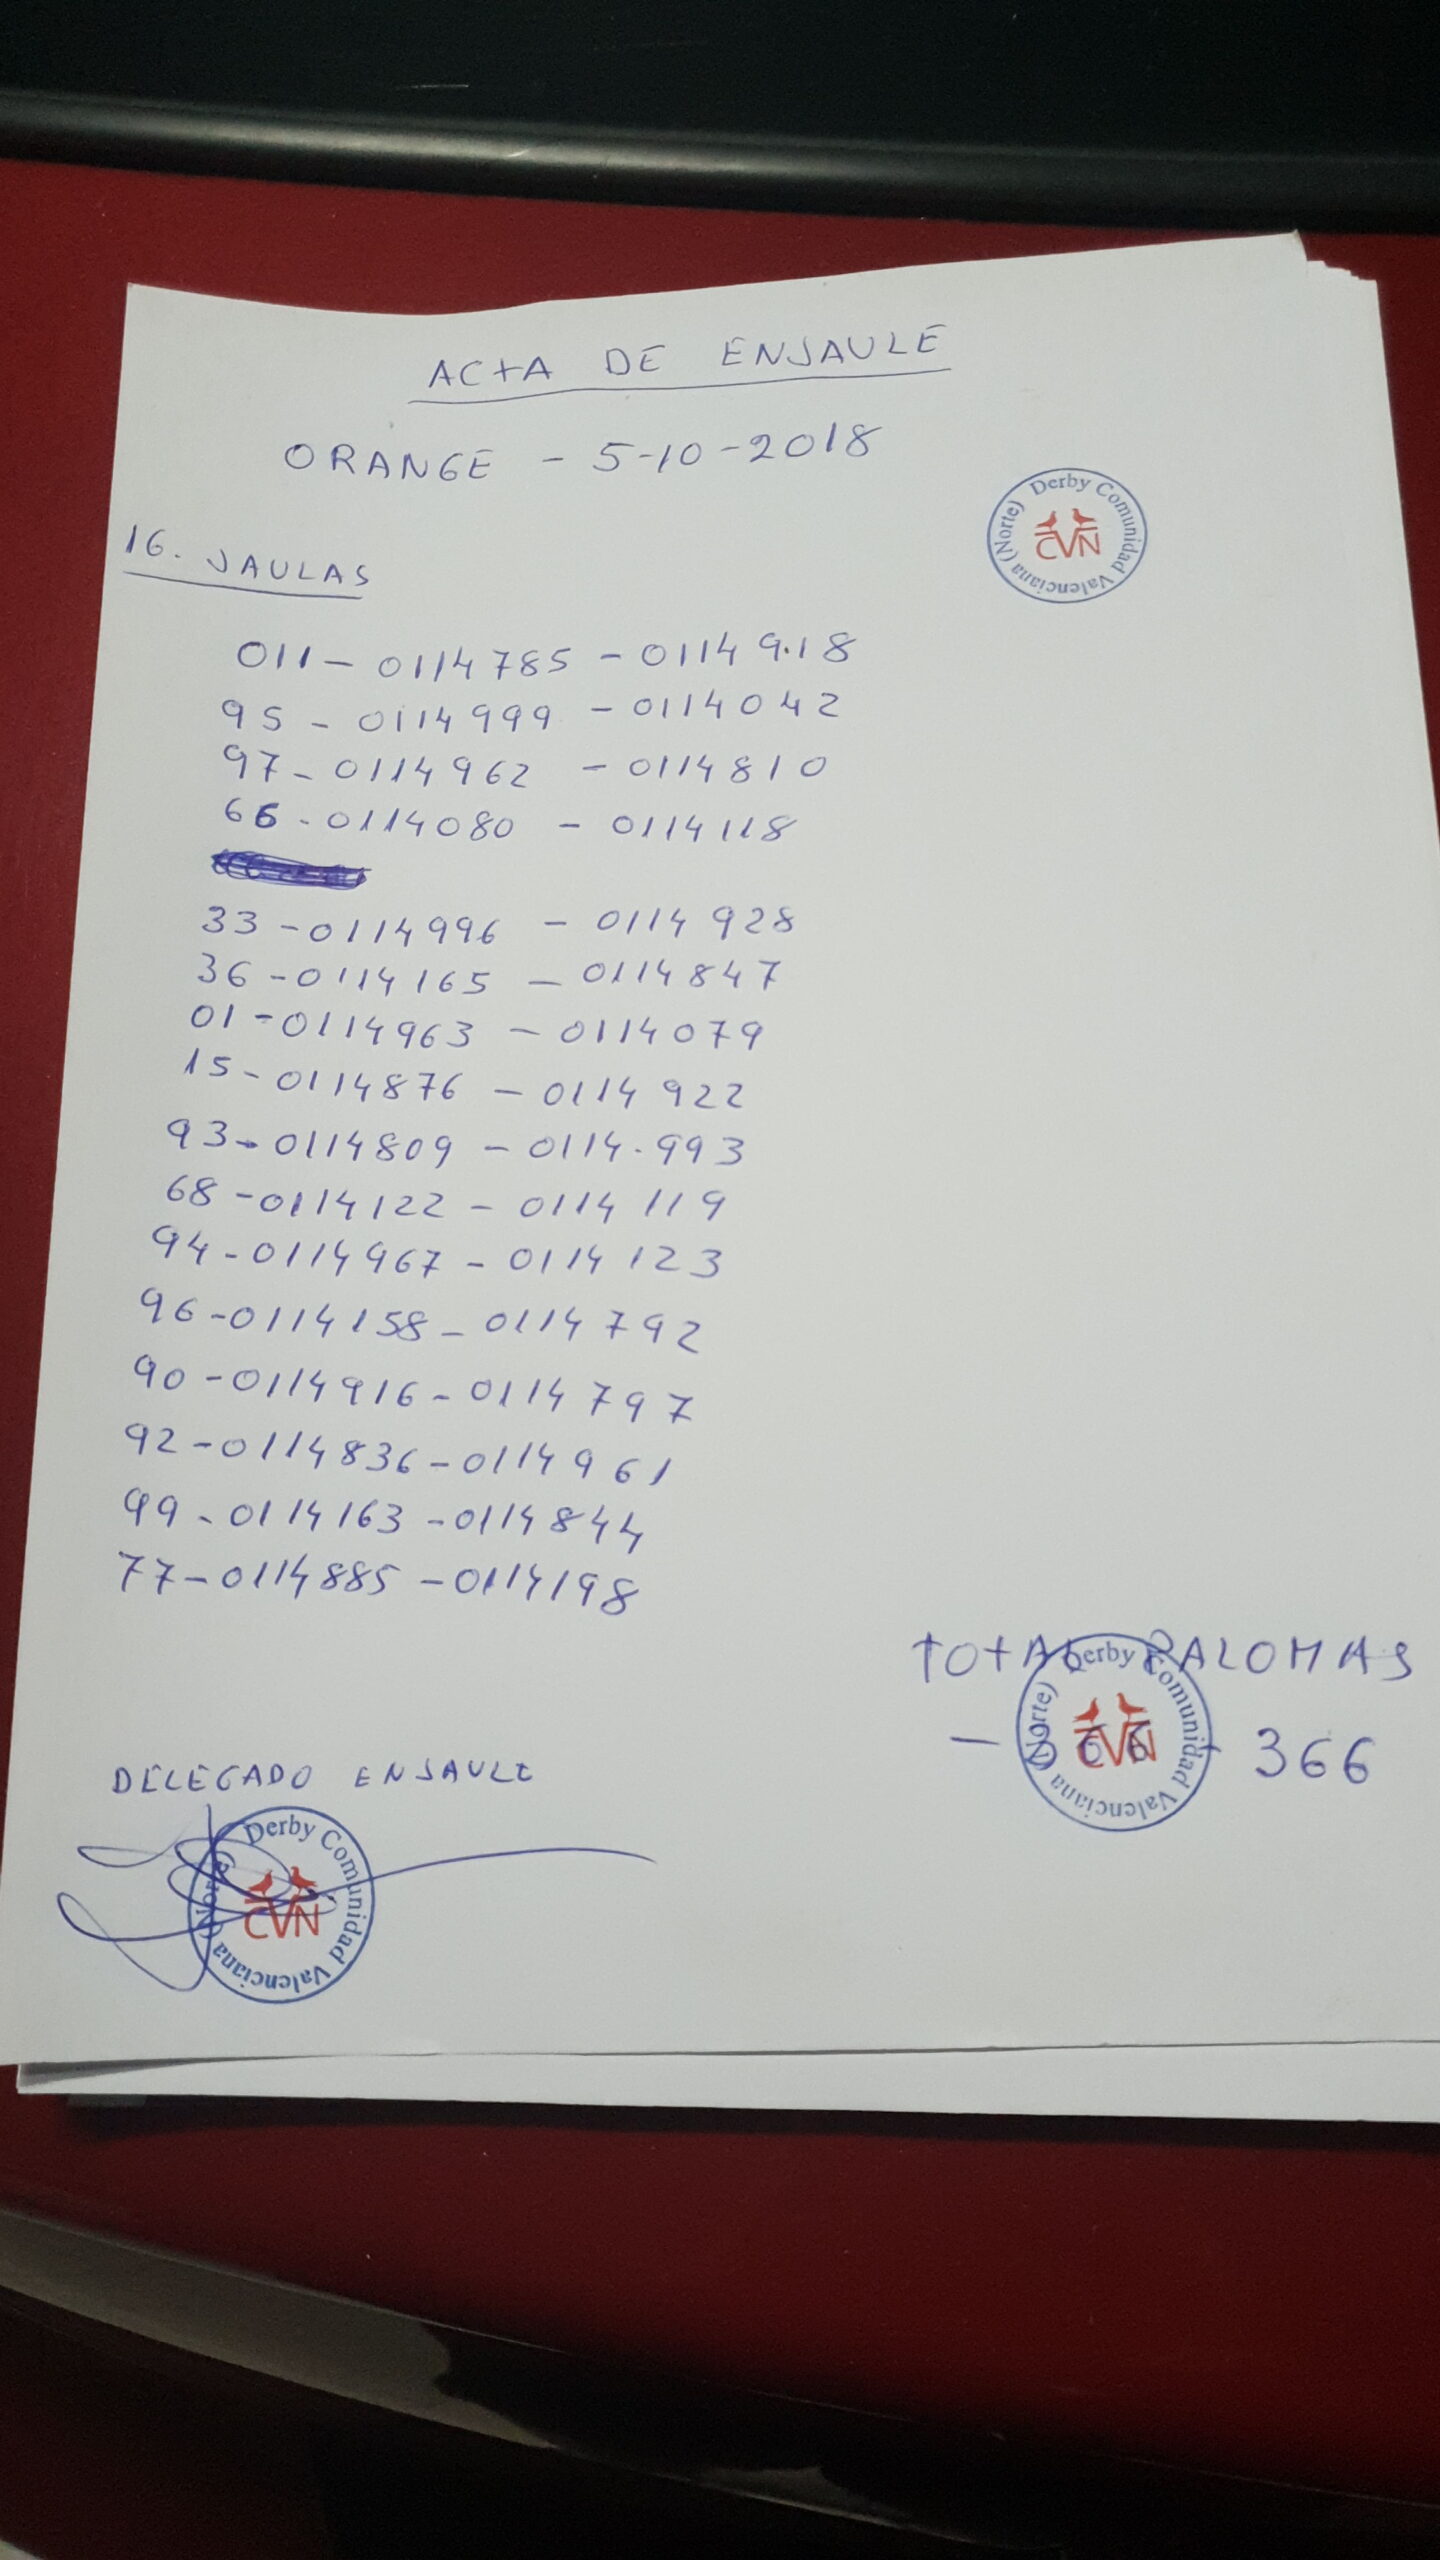 ACTA DE ENJAULE
ORANGE - 5-10-2018
Derby Comunidad Valenciana (Norte)
CVN
16. JAULAS
011 - 0114785 - 0114918
95 - 0114999 - 0114042
97 - 0114962 - 0114810
66 - 0114080 - 0114118
33 - 0114996 - 0114928
36 - 0114165 - 0114847
01 - 0114963 - 0114079
15 - 0114876 - 0114922
93 - 0114809 - 0114.993
68 - 0114122 - 0114119
94 - 0114967 - 0114123
96 - 0114158 - 0114792
90 - 0114916 - 0114797
92 - 0114836 - 0114961
99 - 0114163 - 0114844
77 - 0114885 - 0114198
TOTAL PALOMAS
- 366 - 366
Derby Comunidad Valenciana (Norte)
CVN
DELEGADO ENJAULE
Derby Comunidad Valenciana (Norte)
CVN